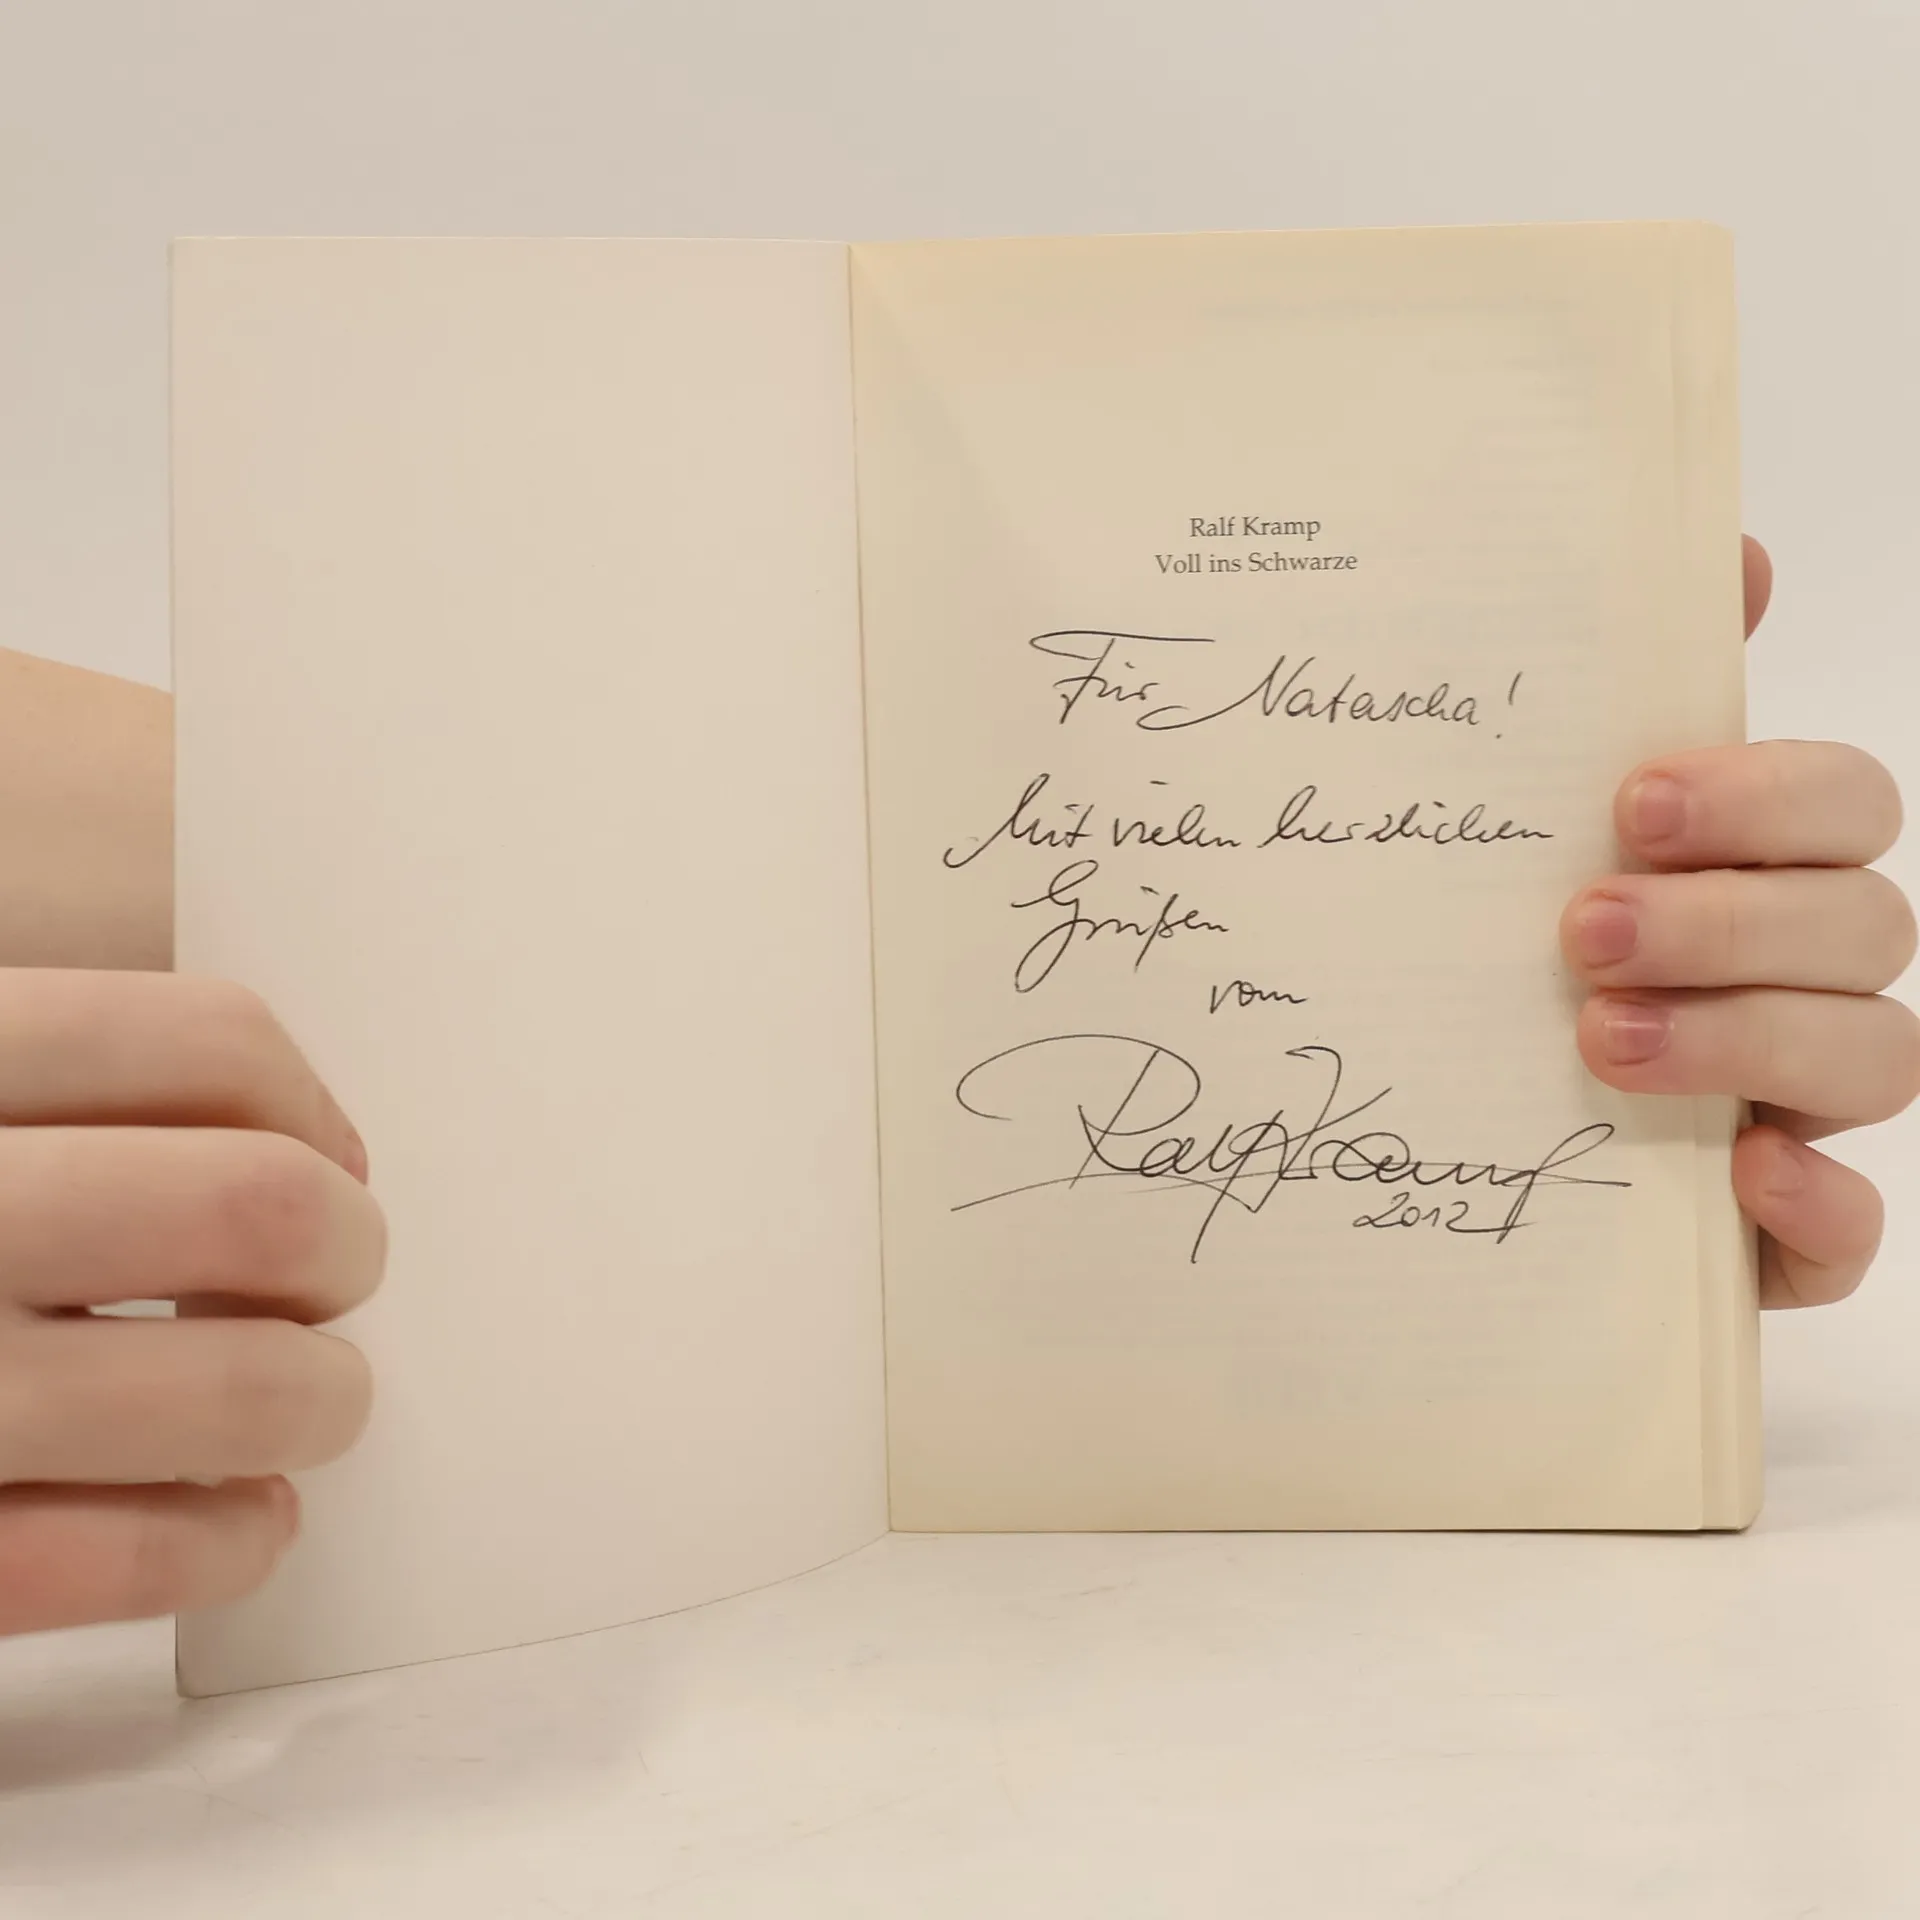 Ralf Kramp
Voll ins Schwarze
Für Natascha!
Mit vielen herzlichen
Grüßen
vom
Ralf Kramp
2012